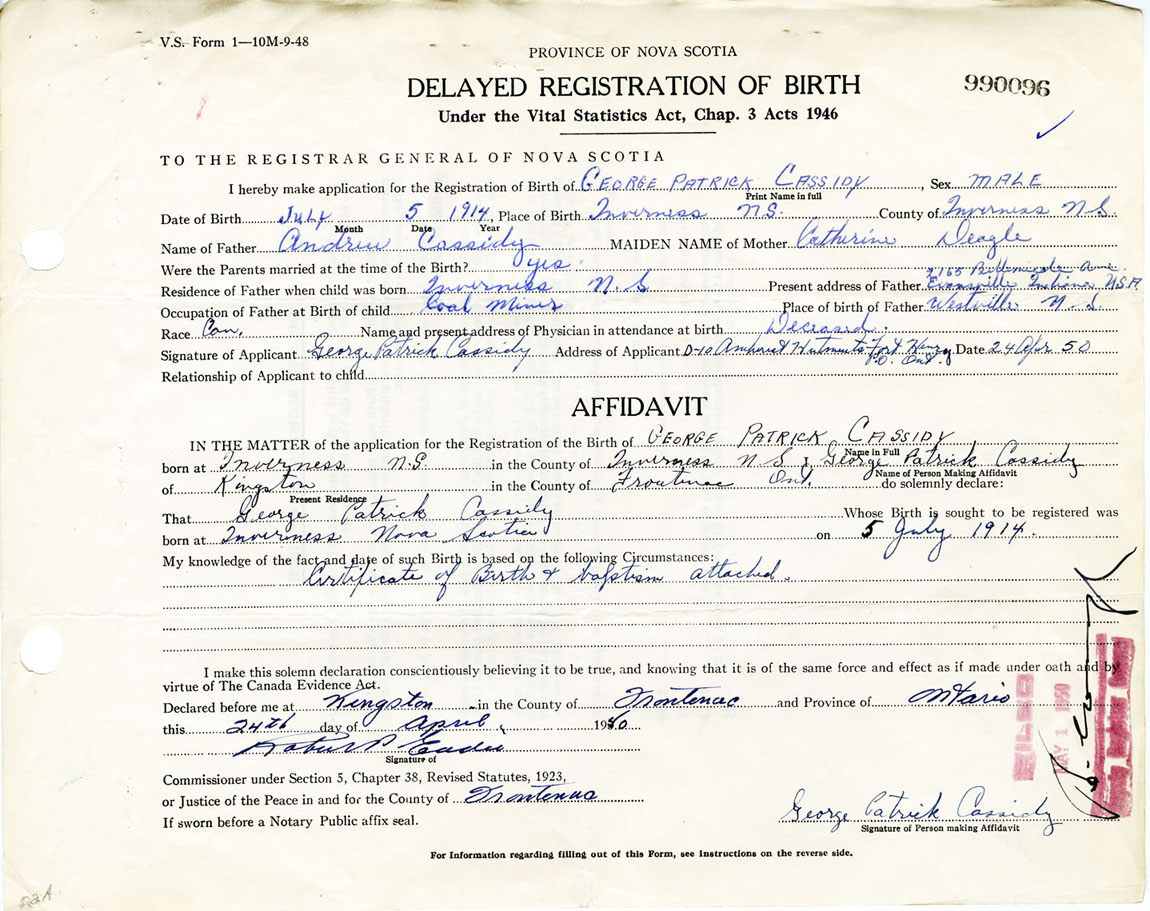 V.S. Form 1—10M-9-48
PROVINCE OF NOVA SCOTIA
DELAYED REGISTRATION OF BIRTH
990096
Under the Vital Statistics Act, Chap. 3 Acts 1946
TO THE REGISTRAR GENERAL OF NOVA SCOTIA
I hereby make application for the Registration of Birth of GEORGE PATRICK CASSIDY, Sex MALE
Print Name in full
Date of Birth July 5 1914, Place of Birth Inverness N.S. County of Inverness N.S.
Month Date Year
Name of Father Andrew Cassidy MAIDEN NAME of Mother Catherine Deagle
Were the Parents married at the time of the Birth? yes.
Residence of Father when child was born Inverness N.S Present address of Father Evansville Indiana U.S.A.
Occupation of Father at Birth of child Coal Miner Place of birth of Father Westville N.S.
Race Can. Name and present address of Physician in attendance at birth Deceased.
Signature of Applicant George Patrick Cassidy Address of Applicant D-10 Amherst Hutments Fort Henry Date 24 Apr 50
P.O. Ont.
Relationship of Applicant to child
AFFIDAVIT
IN THE MATTER of the application for the Registration of the Birth of GEORGE PATRICK CASSIDY
Name in Full
born at Inverness N.S. in the County of Inverness N S I, George Patrick Cassidy
Name of Person Making Affidavit
of Kingston in the County of Frontenac Ont. do solemnly declare:
Present Residence
That George Patrick Cassidy Whose Birth is sought to be registered was
born at Inverness Nova Scotia on 5 July 1914.
My knowledge of the fact and date of such Birth is based on the following Circumstances:
Certificate of Birth & baptism attached.
I make this solemn declaration conscientiously believing it to be true, and knowing that it is of the same force and effect as if made under oath and by
virtue of The Canada Evidence Act.
Declared before me at Kingston in the County of Frontenac and Province of Ontario
this 24th day of April, 1950
Signature of
Commissioner under Section 5, Chapter 38, Revised Statutes, 1923,
or Justice of the Peace in and for the County of Frontenac
If sworn before a Notary Public affix seal.
George Patrick Cassidy
Signature of Person making Affidavit
FILED
MAY 1 1950
For Information regarding filling out of this Form, see Instructions on the reverse side.
22A